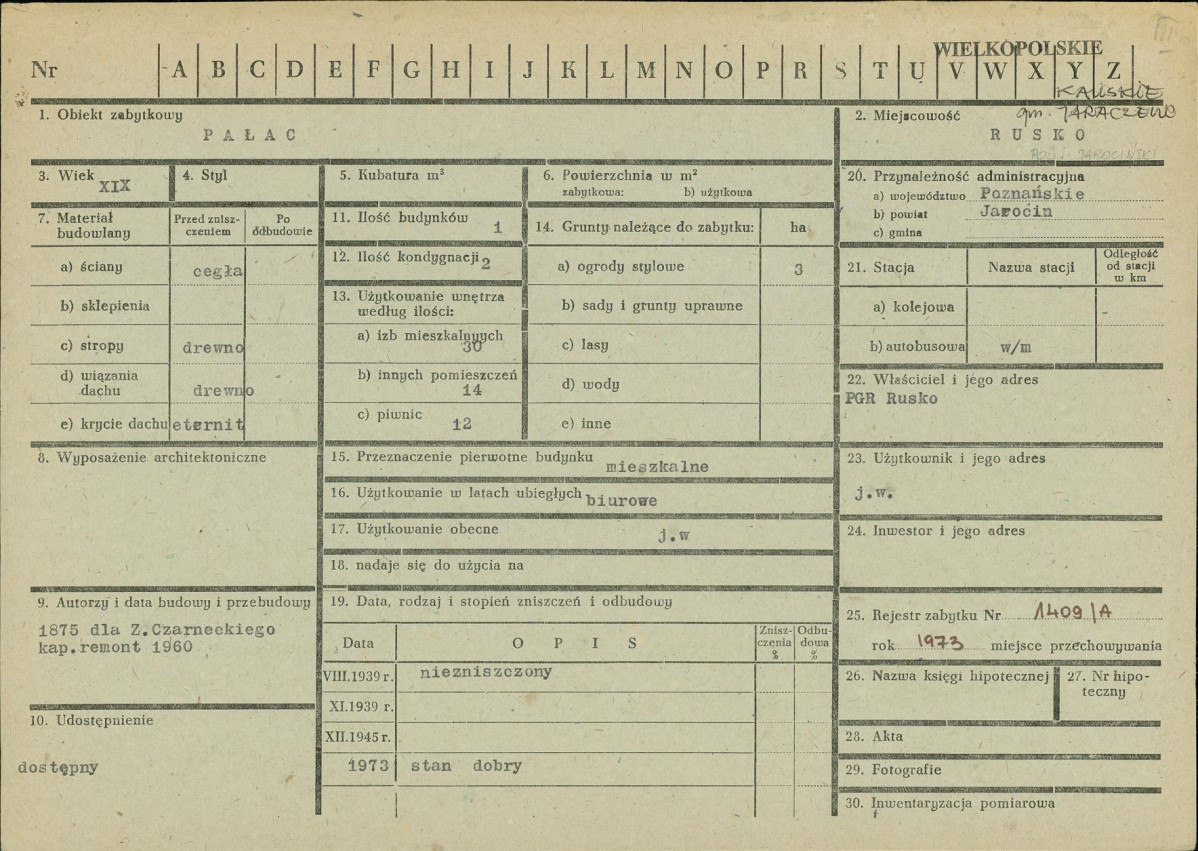 III
WIELKOPOLSKIE
Nr A B C D E F G H I J K L M N O P R S T U V W X Y Z
KALISKIE
gm. JARACZEWO
1. Obiekt zabytkowy
PAŁAC
2. Miejscowość
RUSKO
3. Wiek XIX
4. Styl
5. Kubatura m³
6. Powierzchnia w m²
zabytkowa: b) użytkowa
20. Przynależność administracyjna
a) województwo Poznańskie
b) powiat Jarocin
c) gmina
7. Materiał budowlany
Przed zniszczeniem
Po odbudowie
a) ściany cegła
b) sklepienia
c) stropy drewno
d) wiązania dachu drewno
e) krycie dachu eternit
11. Ilość budynków 1
12. Ilość kondygnacji 2
13. Użytkowanie wnętrza według ilości:
a) izb mieszkalnych 30
b) innych pomieszczeń 14
c) piwnic 12
14. Grunty należące do zabytku: ha
a) ogrody stylowe 3
b) sady i grunty uprawne
c) lasy
d) wody
e) inne
21. Stacja Nazwa stacji Odległość od stacji w km
a) kolejowa -
b) autobusowa w/m
22. Właściciel i jego adres
PGR Rusko
8. Wyposażenie architektoniczne
15. Przeznaczenie pierwotne budynku mieszkalne
16. Użytkowanie w latach ubiegłych biurowe
17. Użytkowanie obecne j.w
18. nadaje się do użycia na
23. Użytkownik i jego adres
j.w.
24. Inwestor i jego adres
9. Autorzy i data budowy i przebudowy
1875 dla Z.Czarneckiego
kap.remont 1960
19. Data, rodzaj i stopień zniszczeń i odbudowy
Data OPIS Zniszczenia % Odbudowa %
VIII.1939 r. niezniszczony
XI.1939 r.
XII.1945 r.
1973 stan dobry
25. Rejestr zabytku Nr 1409/A
rok 1973 miejsce przechowywania
26. Nazwa księgi hipotecznej
27. Nr hipoteczny
10. Udostępnienie
dostępny
28. Akta
29. Fotografie
30. Inwentaryzacja pomiarowa